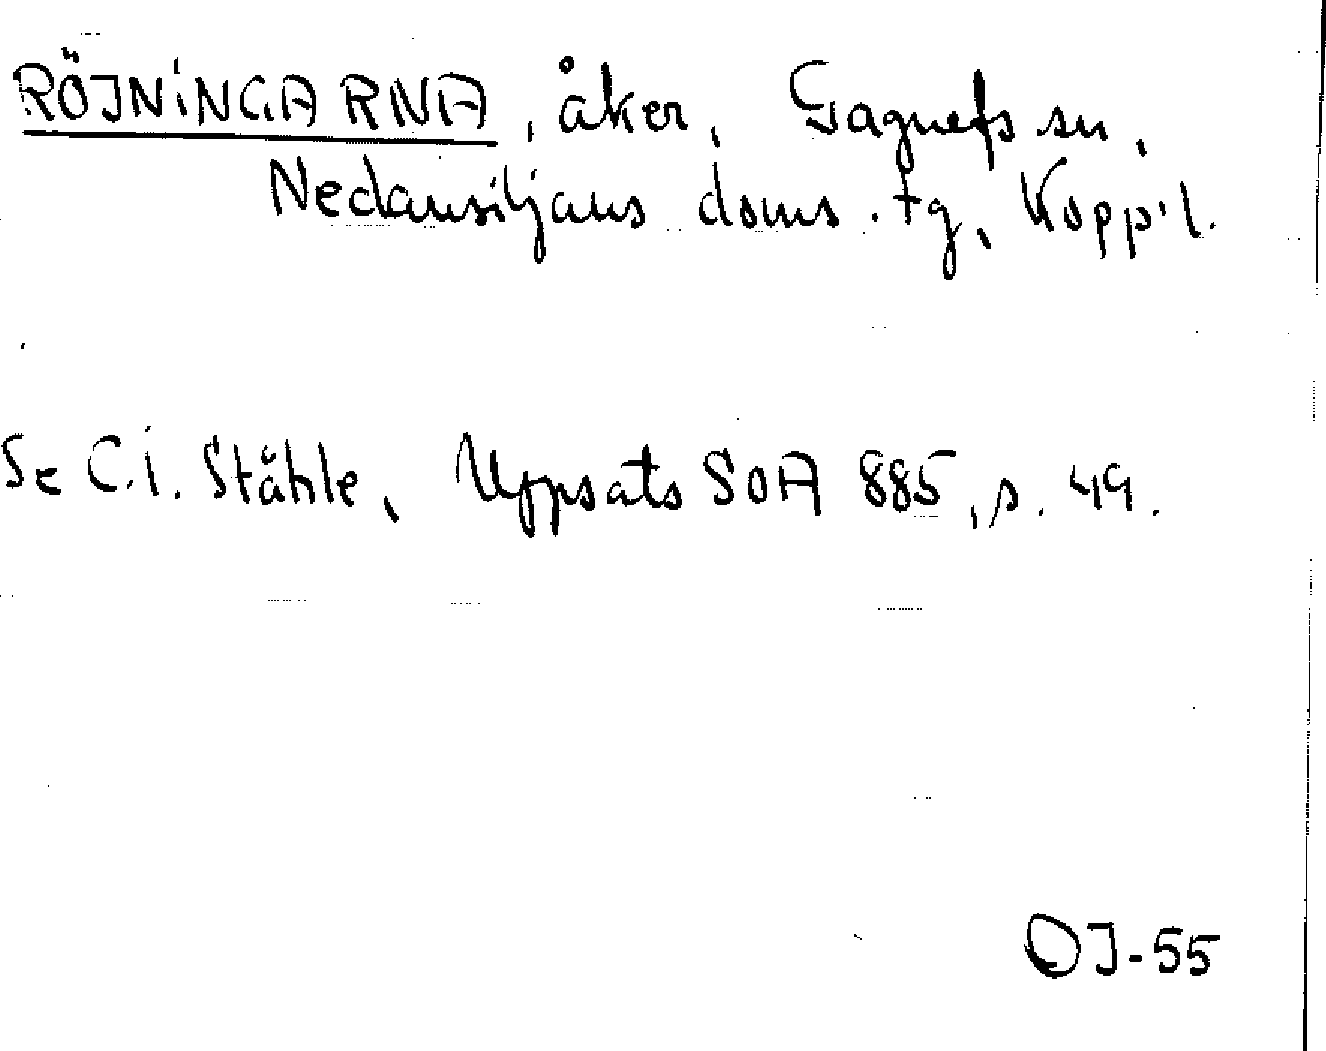 RÖJNINGARNA, åker, Gagnefs sn,
Nedansiljans doms. tg, Kopp. l.
Se C.I. Ståhle, Uppsats SOA 885, s. 49.
OJ-55